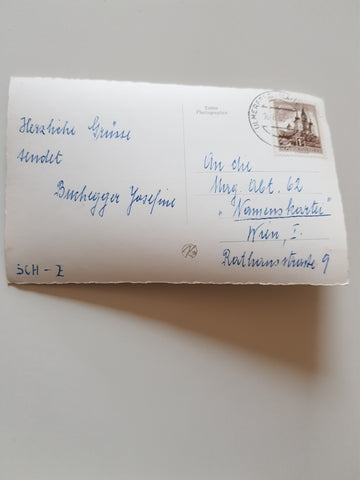 Herzliche Grüsse
sendet
Buchegger Josefine
SCH - Z
Echte
Photographie
An die
Mag. Abt. 62
„Namenskartei"
Wien, I.
Rathausstrasse 9